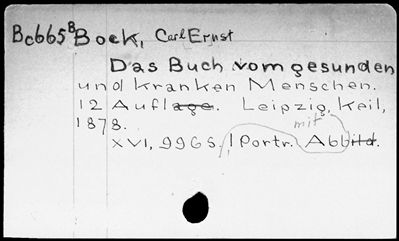 Bc665B Bock, Carl Ernst
Das Buch vom gesunden
und kranken Menschen.
12 Auflage. Leipzig, Keil,
1878.
mit
XVI, 996 S., 1 Portr. Abbild.